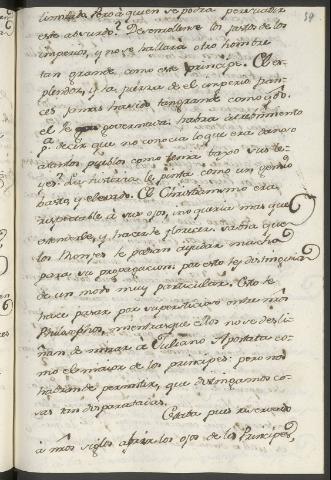 limitado. Pero à quien se podra persuadir
este absurdo? Desenrollense los fastos de los
imperios, y no se hallarà otro hombre
tan grande como este principe. El es-
plendor, y la fuerza de el imperio fran-
ces jamas ha sido tan grande como qdo.
el le governava: habra atrevimiento
a decir que no conocia lo que era dañoso
a tantos pueblos como tenia bajo sus le-
yes? La historia le pinta como un genio
basto, y elevado. El Christianismo era
respectable à sus ojos, no queria mas que
estenderle, y hacerle florecer. Sabia que
los Monjes le podian ayudar mucho
para su propagacion: por esto les distinguia
de un modo muy particular. Esto le
hace pasar por supersticioso entre nros
Philosophos, mientras que ellos no se desli-
ñan de mirar à Juliano Apostata co-
mo el mayor de los principes: pero nos
haràn de permitir, que distingamos co-
sas tan disparatadas.
Estaba pues reservado
à nros siglos abrir los ojos de los Principes,